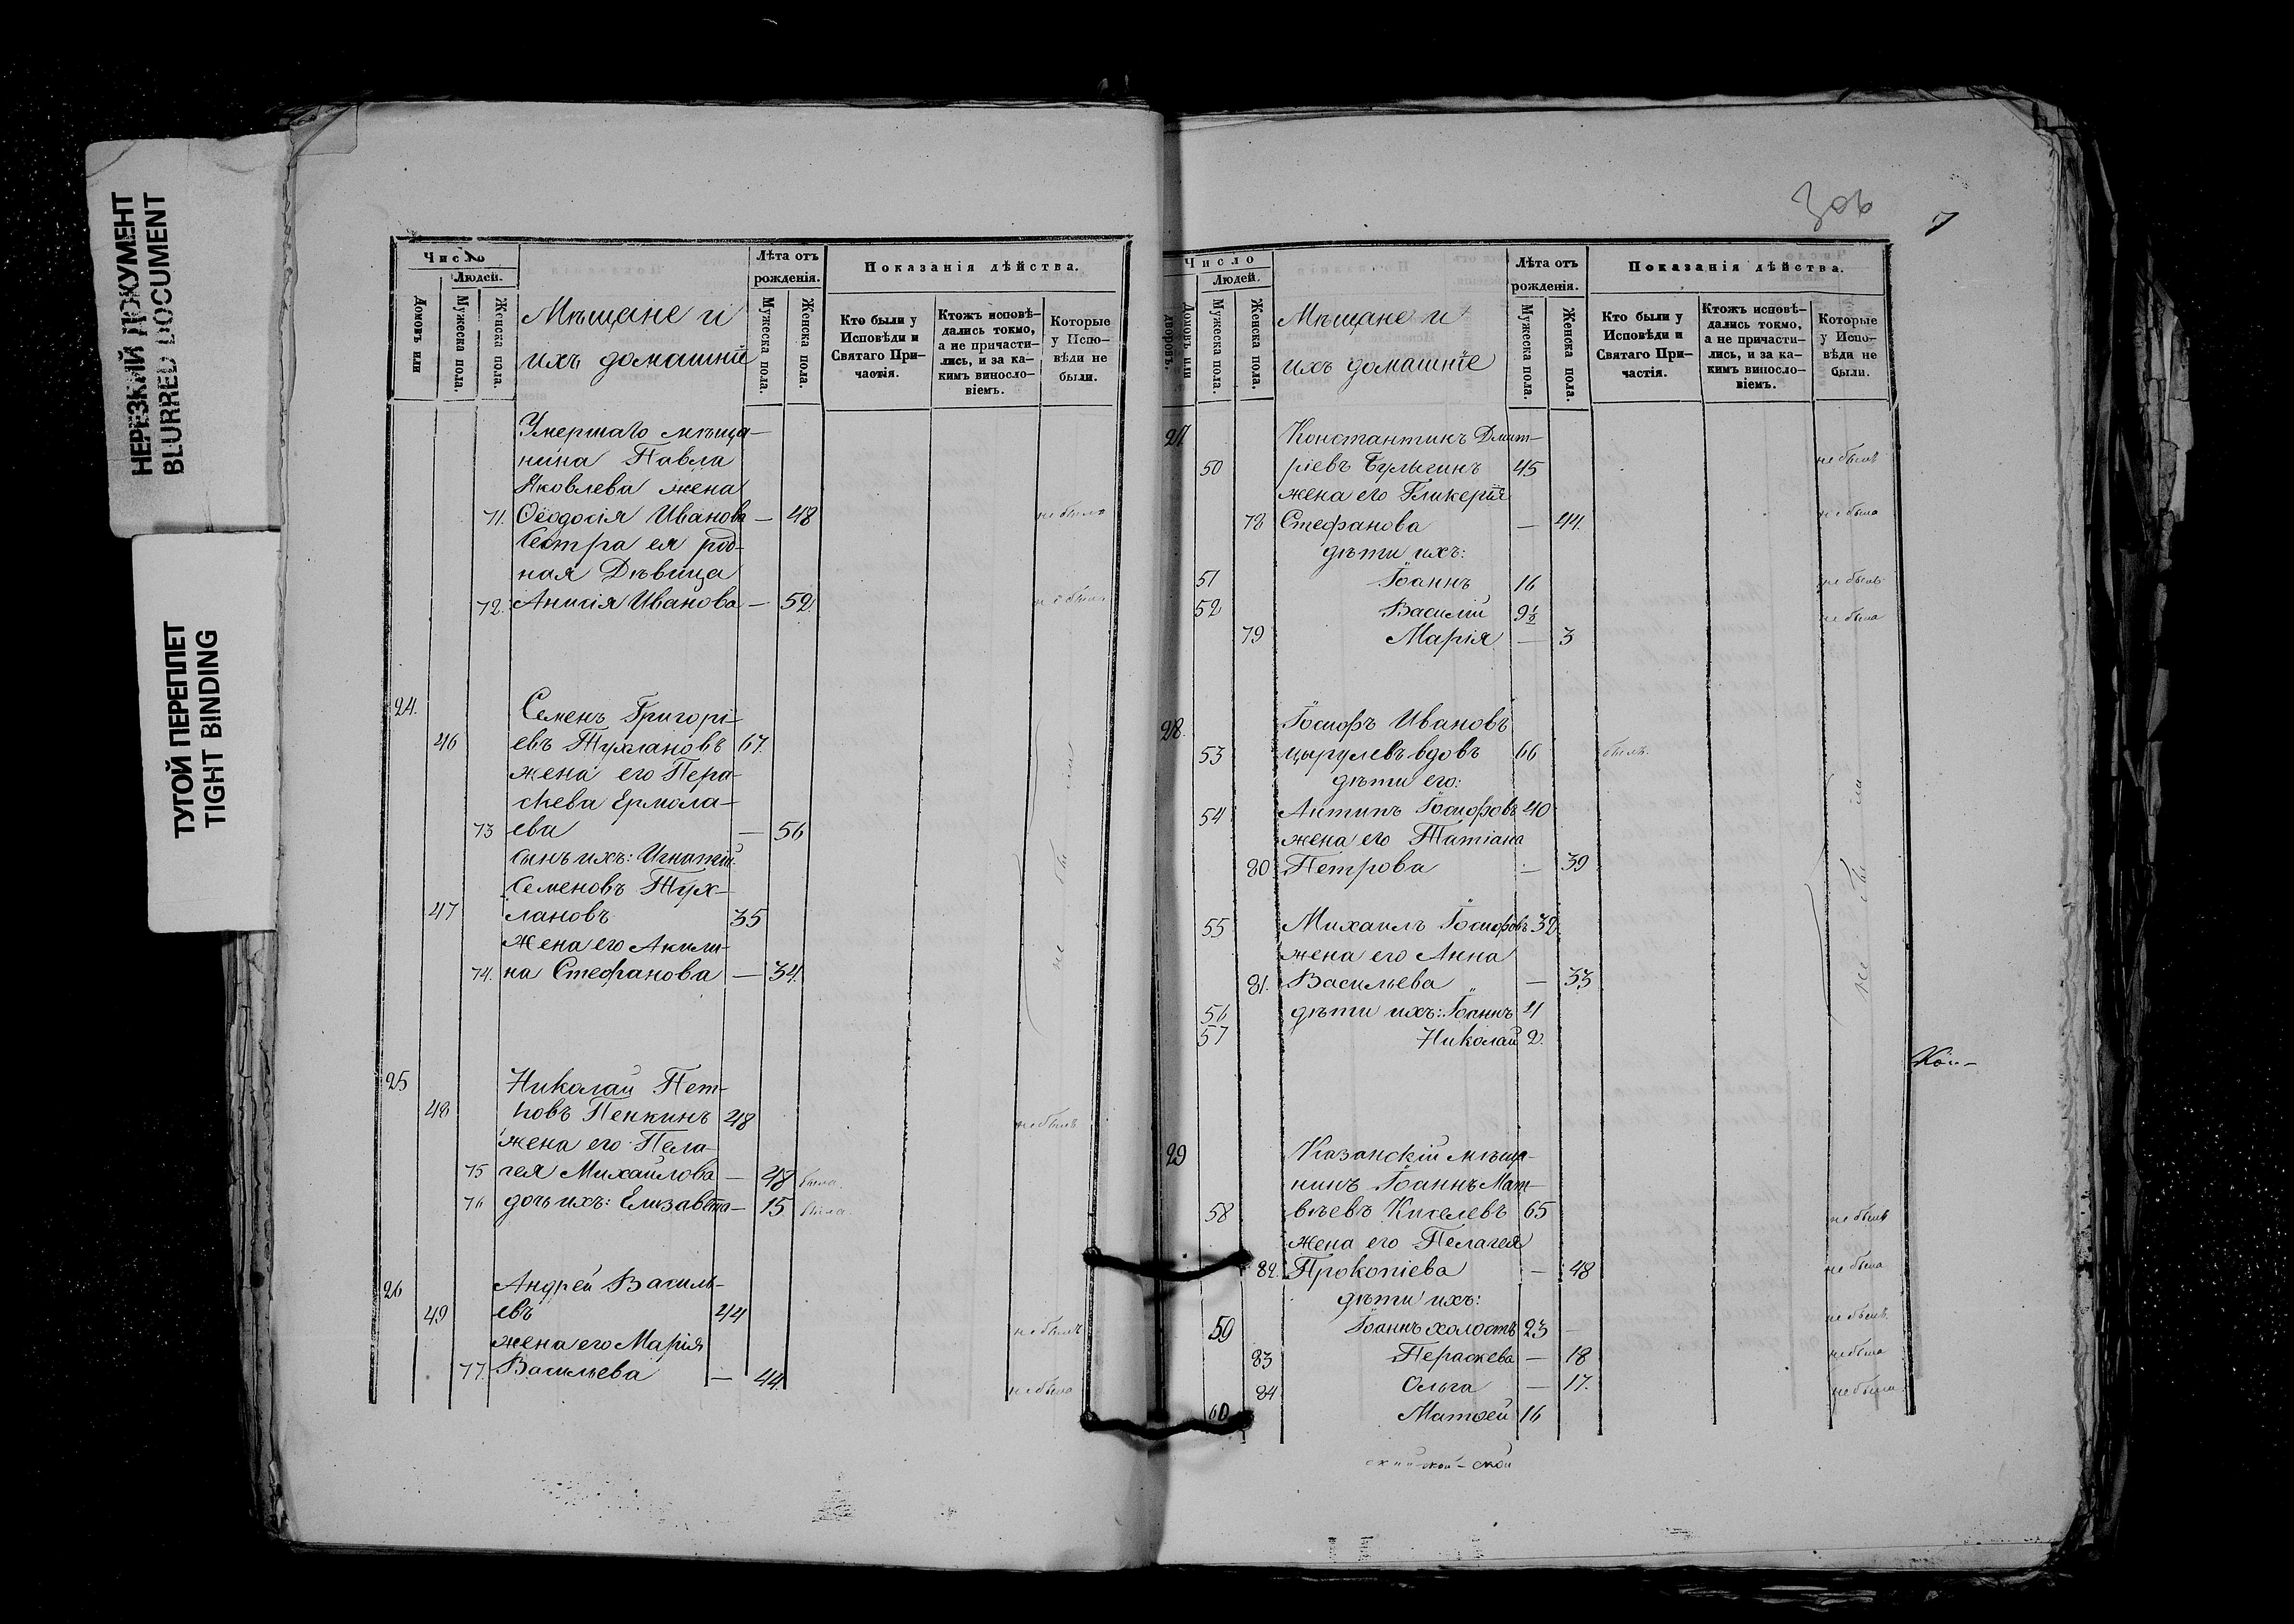 НЕРЕЗКИЙ ДОКУМЕНТ
BLURRED DOCUMENT
ТУГОЙ ПЕРЕПЛЕТ
TIGHT BINDING
Число
Людей.
Домовъ или
Мужеска пола.
Женска пола.
Мѣщане и
ихъ домашнiе
Лѣта отъ
рожденія.
Мужеска пола.
Женска пола.
Показанія дѣйства.
Кто были у
Исповѣди и
Святаго При-
частія.
Ктожъ исповѣ-
дались токмо,
а не причасти-
лись, и за ка-
кимъ виносло-
віемъ.
Которые
у Испо-
вѣди не
были.
Умершаго мѣща-
нина Павла
Яковлева жена
71. Ѳеодосія Иванова — 48 не была
Сестра ея род-
ная Дѣвица
72. Анисія Иванова — 52. не была
24. Семенъ Григорі-
46 евъ Тухлановъ 67.
жена его Пера-
скева Ермола-
73 ева — 56
сынъ ихъ: Игнатій
Семеновъ Тух-
47 лановъ 35
жена его Акили-
74. на Стефанова — 34.
не были
25 Николай Пет-
48 ровъ Пенкинъ 48 не былъ
жена его Пела-
75 гея Михайлова — 48 была.
76 дочь ихъ: Елизавета — 15 была.
26 Андрей Василь-
49 евъ 44 не былъ
жена его Марія
77. Васильева — 44. не была
306
7
Число
Людей.
Домовъ или
дворовъ.
Мужеска пола.
Женска пола.
Мѣщане и
ихъ домашніе
Лѣта отъ
рожденія.
Мужеска пола.
Женска пола.
Показанія дѣйства.
Кто были у
Исповѣди и
Святаго При-
частія.
Ктожъ исповѣ-
дались токмо,
а не причасти-
лись, и за ка-
кимъ виносло-
віемъ.
Которые
у Испо-
вѣди не
были.
27. Константинъ Дмит-
50 ріевъ Булыгинъ 45 не былъ
жена его Гликерія
78 Стефанова — 44. не была
дѣти ихъ:
51 Іоаннъ 16 не былъ
52 Василій 9½ не была
79 Марія — 3
28. Іосифъ Ивановъ
53 Цырулевъ вдовъ 66 былъ.
дѣти его:
54 Антипъ Іосифовъ 40
жена его Татіана
80 Петрова — 39
55 Михаилъ Іосифовъ 32.
жена его Анна
81. Васильева — 33
56 дѣти ихъ: Іоаннъ 4
57 Николай 2.
не были
29 Казанскій мѣща-
нинъ Іоаннъ Мат-
58 вѣевъ Киселевъ 65 не былъ
жена его Пелагея
82. Прокопіева — 48 не была
дѣти ихъ:
59 Іоаннъ холостъ 23 — не былъ
83 Пераскева — 18 не была
84 Ольга — 17. не была.
60 Матѳей 16